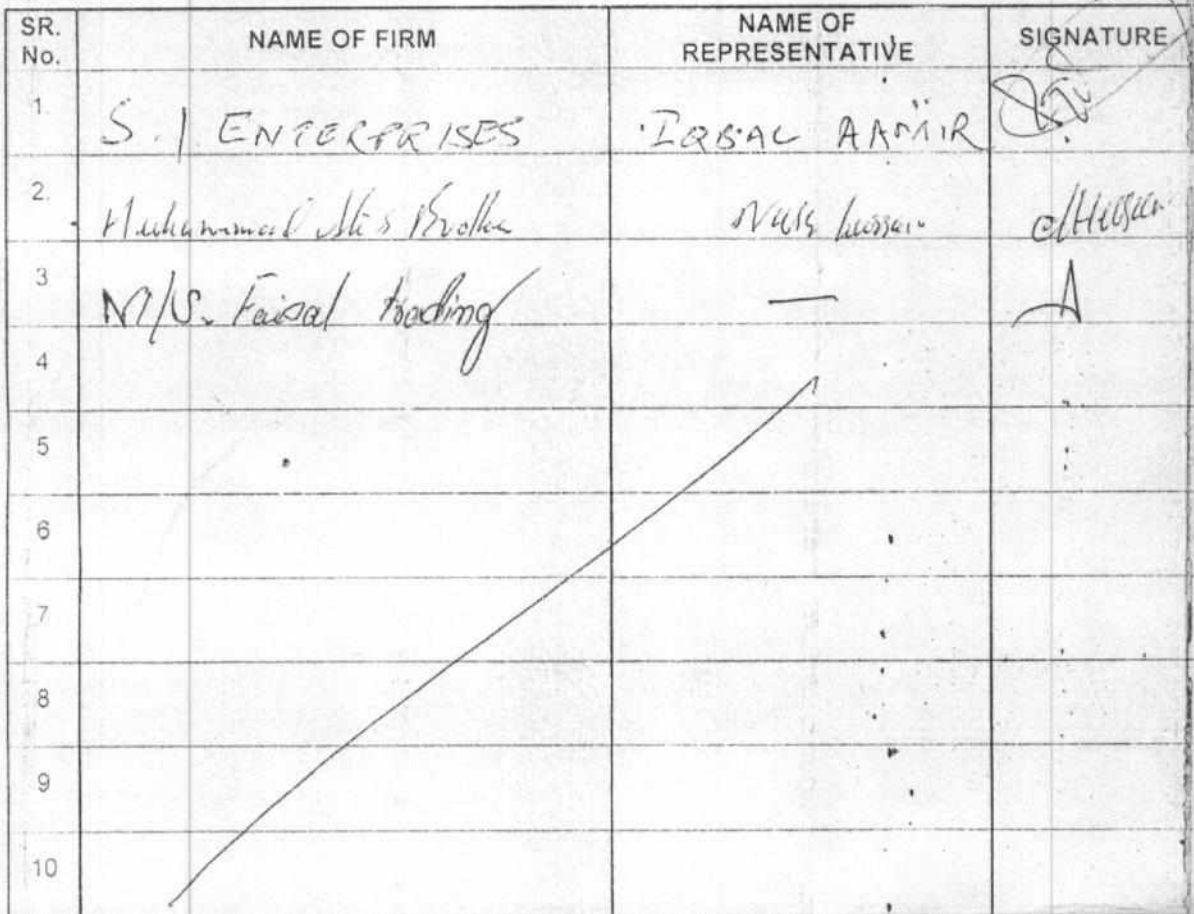 SR. No. NAME OF FIRM NAME OF REPRESENTATIVE SIGNATURE
1. S.I ENTERPRISES IQBAL AAMIR
2. Muhammad
3 M/S. Faisal trading —
4
5
6
7
8
9
10